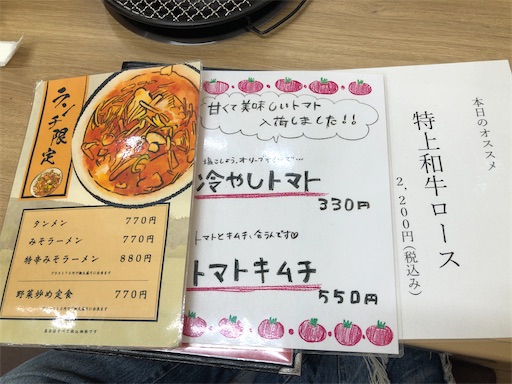 ランチ限定
タンメン 770円
みそラーメン 770円
特辛みそラーメン 880円
野菜炒め定食 770円
甘くて美味しいトマト
入荷しました!!
塩こしょう、オリーブ
冷やしトマト
330円
トマトとキムチ、合うんです♡
トマトキムチ
550円
本日のオススメ
特上和牛ロース
2,200円(税込み)